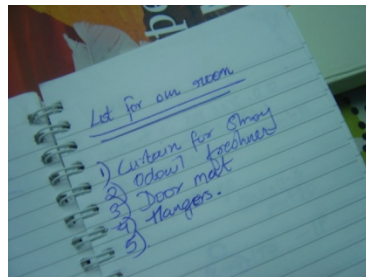 List for our room
1) Curtain for
2) Odowl freshner
3) Door mat
4) Hangers.
5)